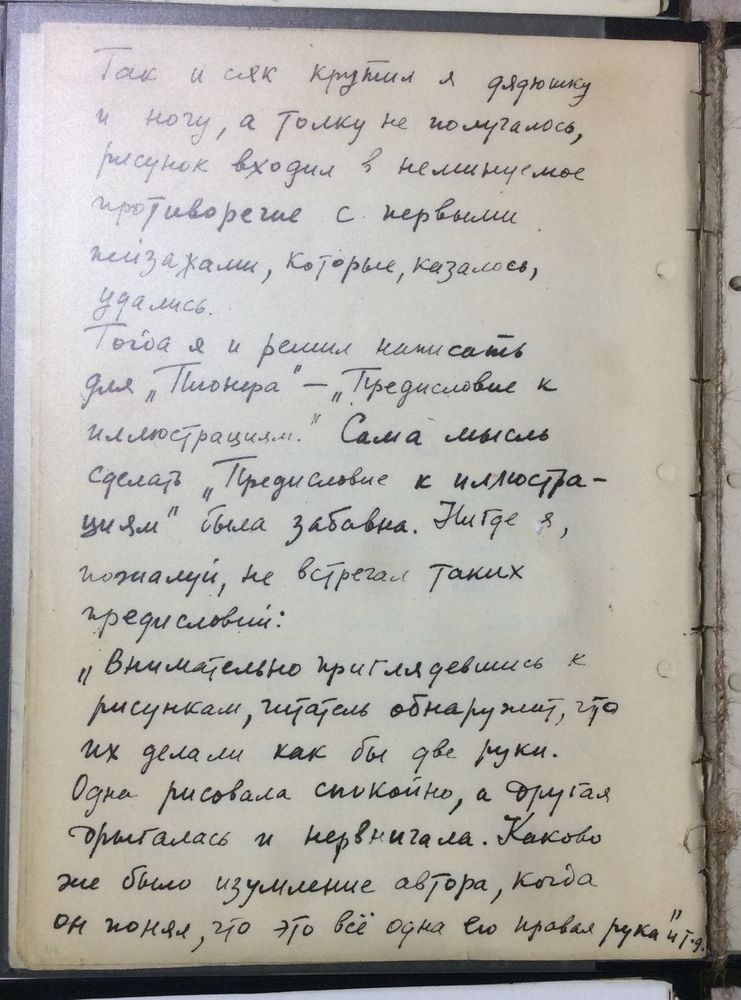 Так и сяк крутил я дядюшку
и ногу, а толку не получалось,
рисунок входил в неминуемое
противоречие с первыми
пейзажами, которые, казалось,
удались.
Тогда я и решил написать
для „Пионера" — „Предисловие к
иллюстрациям." Сама мысль
сделать „Предисловие к иллюстра-
циям" была забавна. Нигде я,
пожалуй, не встречал таких
предисловий:
„Внимательно приглядевшись к
рисункам, читатель обнаружит, что
их делали как бы две руки.
Одна рисовала спокойно, а другая
дрыгалась и нервничала. Каково
же было изумление автора, когда
он понял, что это всё одна его правая рука" и т.д.